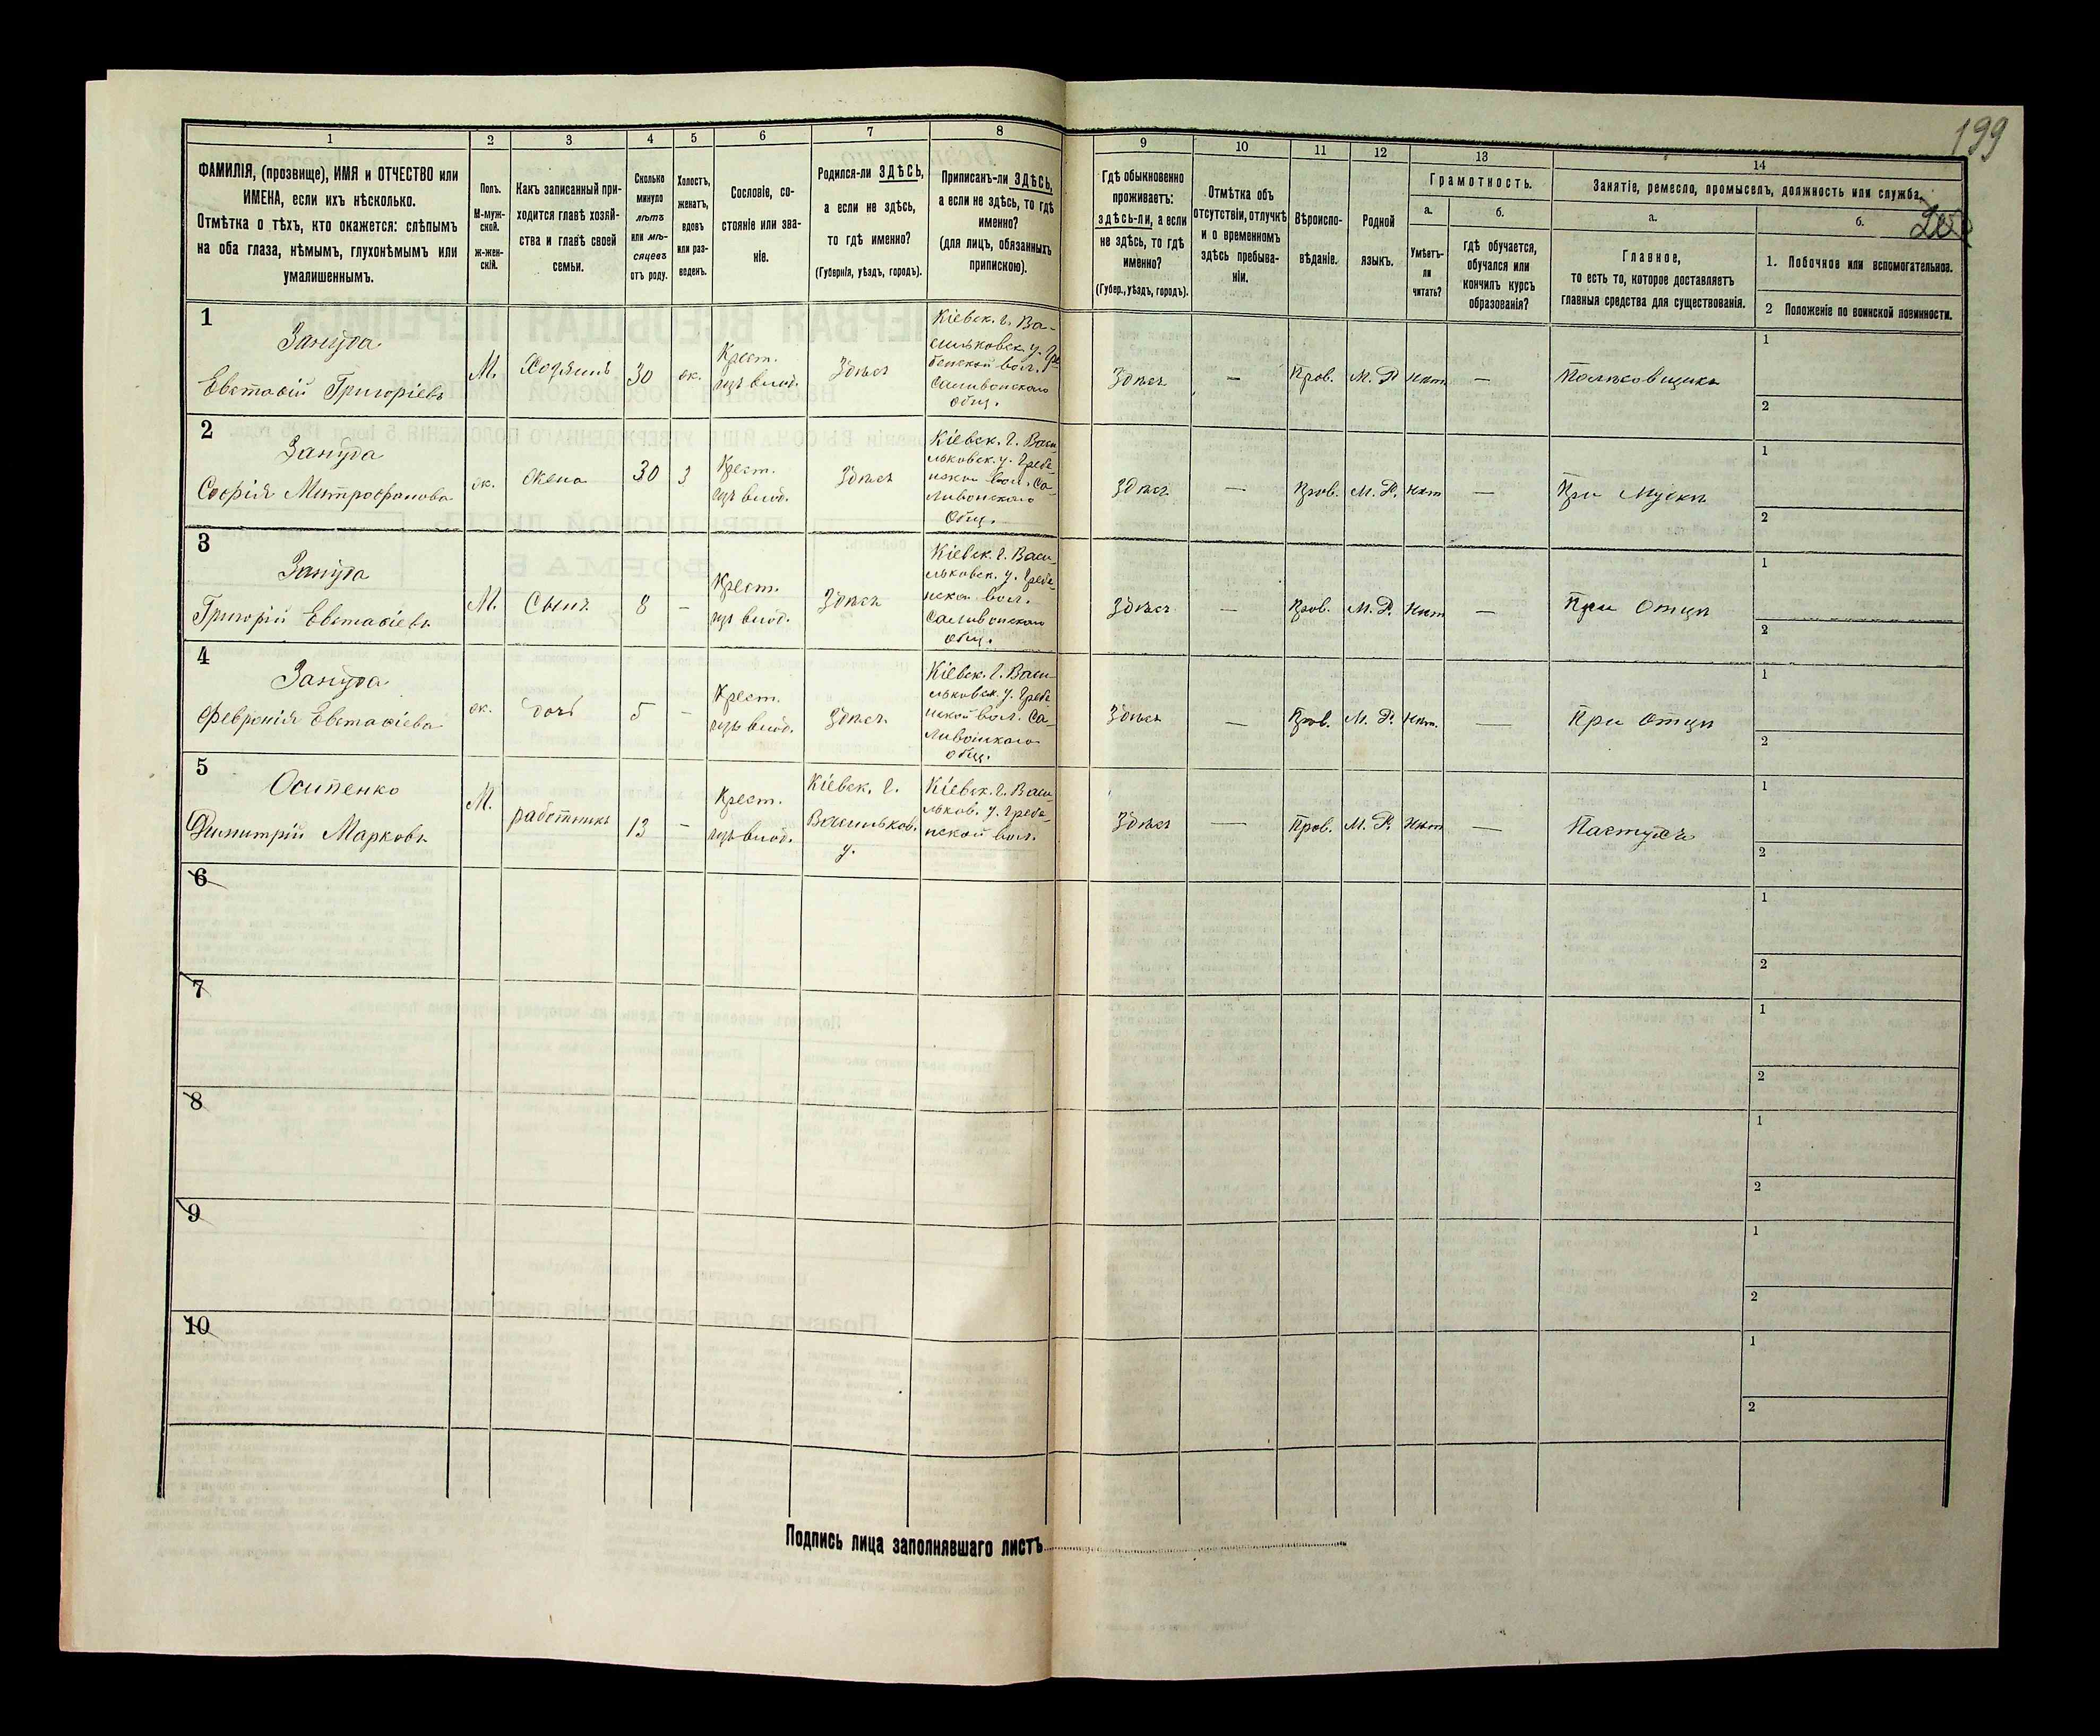 199
1 2 3 4 5 6 7 8 9 10 11 12 13 14
ФАМИЛІЯ, (прозвище), ИМЯ и ОТЧЕСТВО или
ИМЕНА, если ихъ нѣсколько.
Отмѣтка о тѣхъ, кто окажется: слѣпымъ
на оба глаза, нѣмымъ, глухонѣмымъ или
умалишеннымъ.
Полъ.
М-муж-
ской.
Ж-жен-
скій.
Какъ записанный при-
ходится главѣ хозяй-
ства и главѣ своей
семьи.
Сколько
минуло
лѣтъ
или мѣ-
сяцевъ
отъ роду.
Холостъ,
женатъ,
вдовъ
или раз-
веденъ.
Сословіе, со-
стояніе или зва-
ніе.
Родился-ли ЗДѢСЬ,
а если не здѣсь,
то гдѣ именно?
(Губернія, уѣздъ, городъ).
Приписанъ-ли ЗДѢСЬ,
а если не здѣсь, то гдѣ
именно?
(для лицъ, обязанныхъ
припискою).
Гдѣ обыкновенно
проживаетъ:
здѣсь-ли, а если
не здѣсь, то гдѣ
именно?
(Губер., уѣздъ, городъ).
Отмѣтка объ
отсутствіи, отлучкѣ
и о временномъ
здѣсь пребыва-
ніи.
Вѣроиспо-
вѣданіе.
Родной
языкъ.
Грамотность.
а.
Умѣетъ-
ли
читать?
б.
Гдѣ обучается,
обучался или
кончилъ курсъ
образованія?
Занятіе, ремесло, промыселъ, должность или служба.
а.
Главное,
то есть то, которое доставляетъ
главныя средства для существованія.
б.
1. Побочное или вспомогательное.
2 Положеніе по воинской повинности.
1
Зануда
Евстафій Григоріевъ
М.
Хозяинъ
30
ж.
Крест.
изъ влад.
Здѣсь
Кіевск. г. Ва-
сильковск. у. Гре-
бенской вол.
Саливонскаго
общ.
Здѣсь
—
Прав.
М. Р.
Нѣт
—
1
2
2
Зануда
Софія Митрофанова
ж.
Жена
30
з
Крест.
изъ влад.
Здѣсь
Кіевск. г. Васи-
льковск. у. Гребе-
нской вол. Са-
ливонскаго
Общ.
Здѣсь
—
Прав.
М. Р.
Нѣт
—
При Мужѣ
1
2
3
Зануда
Григорій Евстафіевъ
М.
Сынъ
8
—
Крест.
изъ влад.
Здѣсь
Кіевск. г. Васи-
льковск. у. Гребе-
нской вол.
Саливонскаго
общ.
Здѣсь
—
Прав.
М. Р.
Нѣт
—
При Отцѣ
1
2
4
Зануда
Февронія Евстафіева
ж.
дочь
5
—
Крест.
изъ влад.
Здѣсь
Кіевск. г. Васи-
льковск. у. Гребе
нской вол. Са-
ливонскаго
общ.
Здѣсь
—
Прав.
М. Р.
Нѣт.
—
При отцѣ
1
2
5
Осипенко
Димитрій Марковъ
М.
работникъ
13
—
Крест.
изъ влад.
Кіевск. г.
Васильков.
у.
Кіевск. г. Васи-
льков. у. Гребе-
нской вол.
Здѣсь
—
Прав.
М. Р.
Нѣт
—
Пастухъ
1
2
6
1
2
7
1
2
8
1
2
9
1
2
10
1
2
Подпись лица заполнявшаго листъ